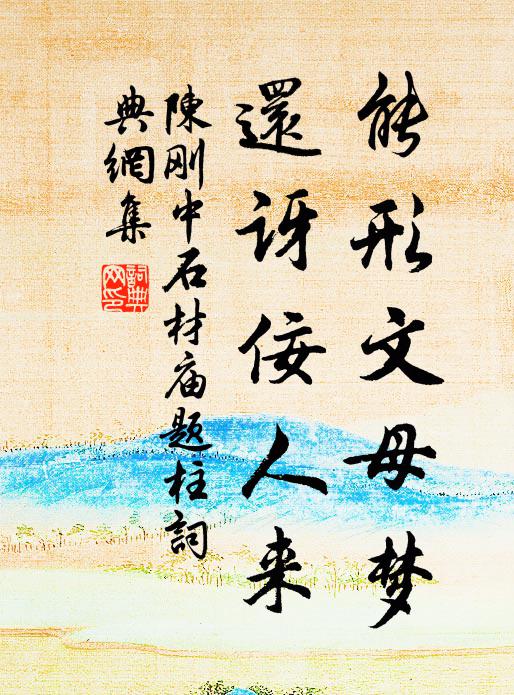 能形文母梦
還讶佞人来
陳刚中石材庙题柱詞
典網集
詞典网印